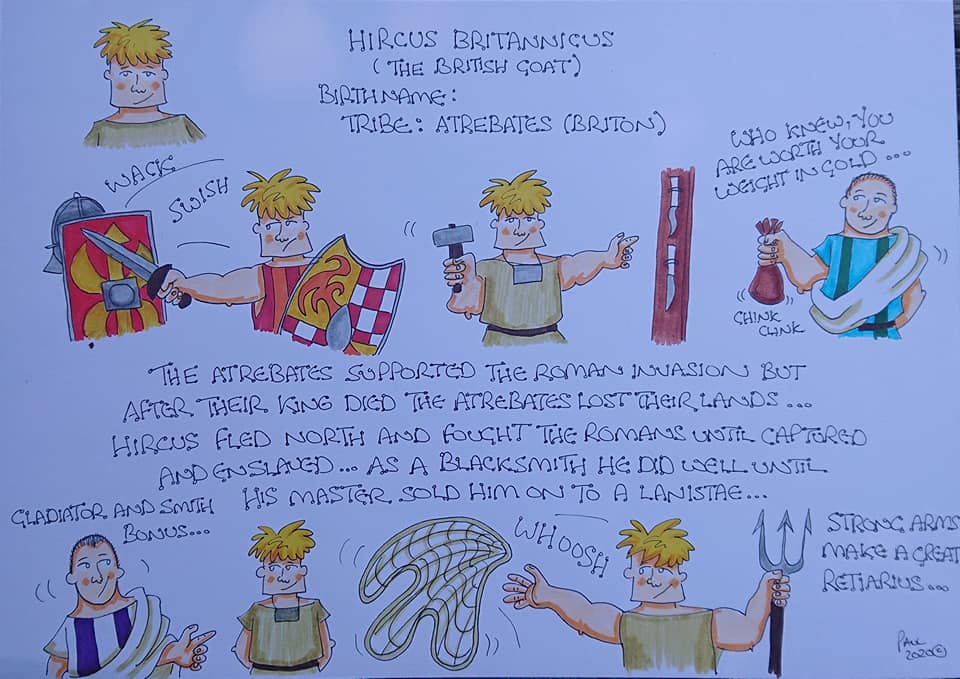 HIRCUS BRITANNICUS
(THE BRITISH GOAT)
BIRTHNAME:
TRIBE: ATREBATES (BRITON)
WACK
SWISH
WHO KNEW, YOU
ARE WORTH YOUR
WEIGHT IN GOLD...
CHINK
CHNK
THE ATREBATES SUPPORTED THE ROMAN INVASION BUT
AFTER THEIR KING DIED THE ATREBATES LOST THEIR LANDS...
HIRCUS FLED NORTH AND FOUGHT THE ROMANS UNTIL CAPTURED
AND ENSLAVED... AS A BLACKSMITH HE DID WELL UNTIL
HIS MASTER SOLD HIM ON TO A LANISTAE...
GLADIATOR AND SMITH
BONUS...
WHOOSH
STRONG ARMS
MAKE A GREAT
RETIARIUS...
PAUL
2020©